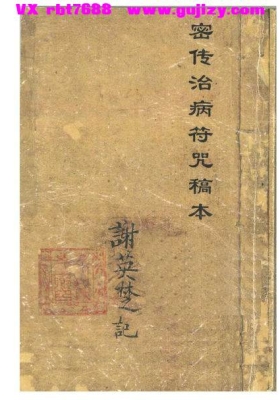 VX rbt7688 www.gujlzy.com
密传治病符咒稿本
謝英楚記